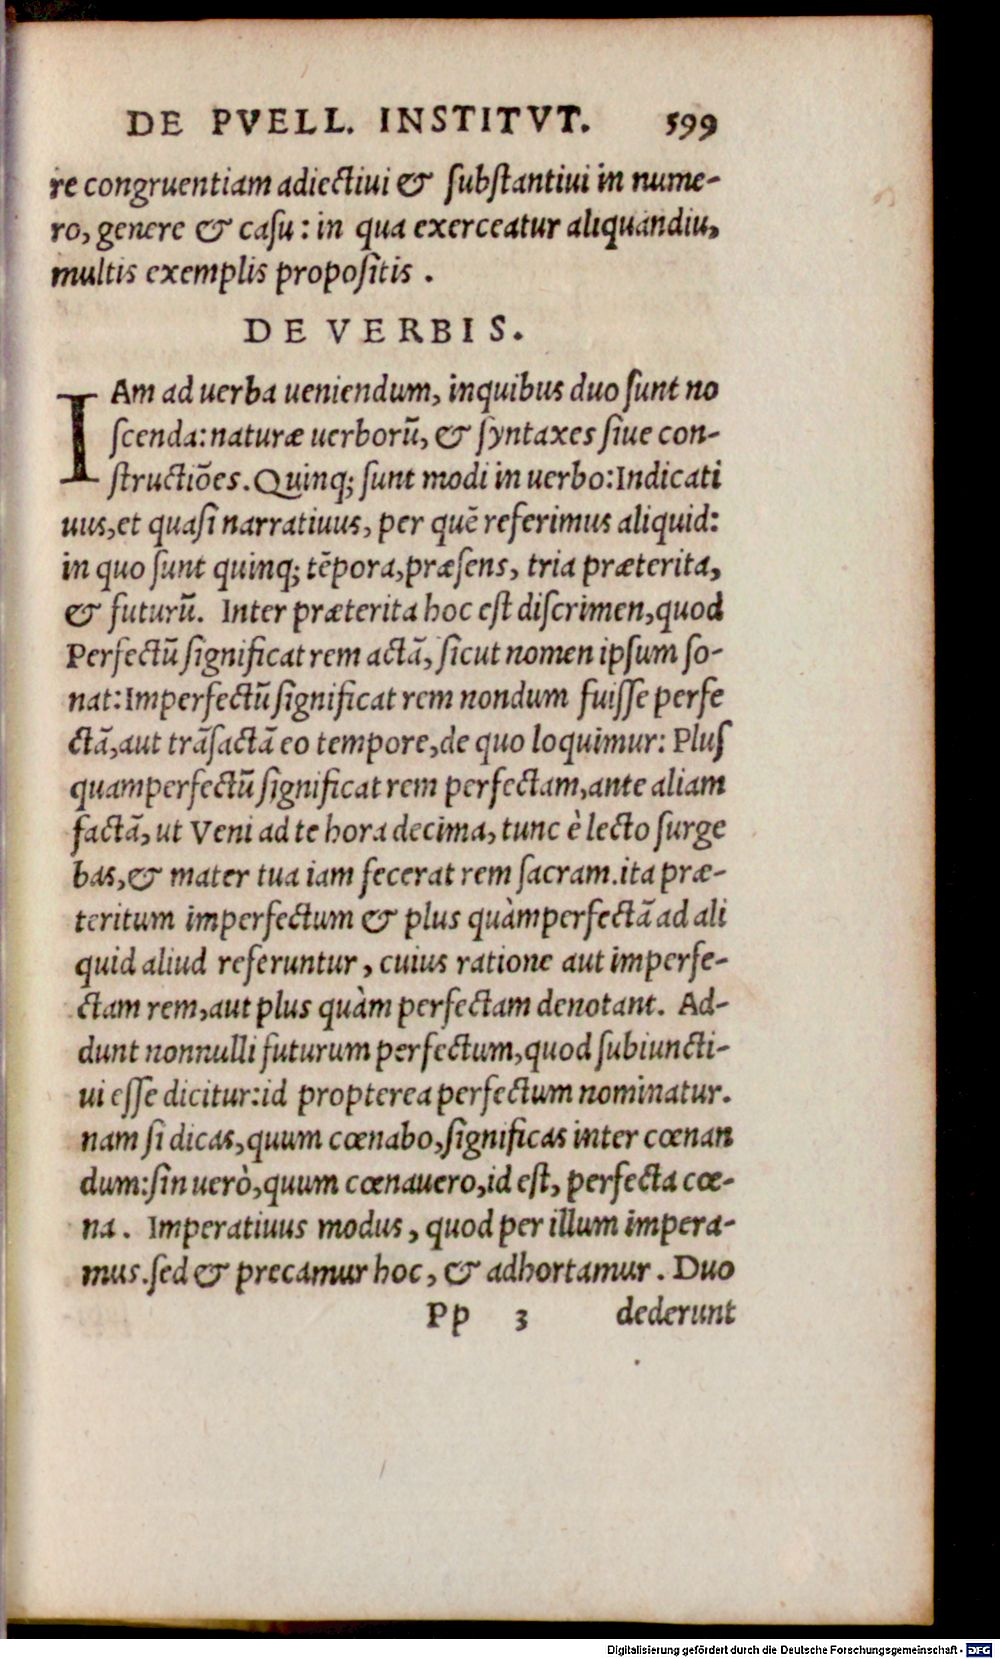 DE PVELL. INSTITVT. 599
re congruentiam adiectiui & ſubſtantiui in nume-
ro, genere & caſu: in qua exerceatur aliquandiu,
multis exemplis propoſitis.
DE VERBIS.
IAm ad uerba ueniendum, in quibus duo ſunt no
ſcenda: naturæ uerborũ, & ſyntaxes ſiue con-
ſtructiões. Quinq; ſunt modi in uerbo: Indicati
uus, et quaſi narratiuus, per quẽ referimus aliquid:
in quo ſunt quinq; tẽpora, præſens, tria præterita,
& futurũ. Inter præterita hoc eſt diſcrimen, quod
Perfectũ ſignificat rem actã, ſicut nomen ipſum ſo-
nat: Imperfectũ ſignificat rem nondum fuiſſe perfe
ctã, aut trãſactã eo tempore, de quo loquimur: Pluſ
quamperfectũ ſignificat rem perfectam, ante aliam
factã, ut Veni ad te hora decima, tunc è lecto ſurge
bas, & mater tua iam fecerat rem ſacram. ita præ-
teritum imperfectum & plus quàmperfectã ad ali
quid aliud referuntur, cuius ratione aut imperfe-
ctam rem, aut plus quàm perfectam denotant. Ad-
dunt nonnulli futurum perfectum, quod ſubiuncti-
ui eſſe dicitur: id propterea perfectum nominatur.
nam ſi dicas, quum cœnabo, ſignificas inter cœnan
dum: ſin uerò, quum cœnauero, id eſt, perfecta cœ-
na. Imperatiuus modus, quod per illum impera-
mus. ſed & precamur hoc, & adhortamur. Duo
Pp 3 dederunt
Digitalisierung gefördert durch die Deutsche Forschungsgemeinschaft - DFG